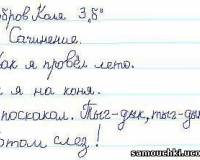 обров Коля 3 "б"
Сочинение.
Как я провёл лето.
я на коня.
поскакал. Тыг-дык, тыг-ды
отом слез!
samouchki.uco